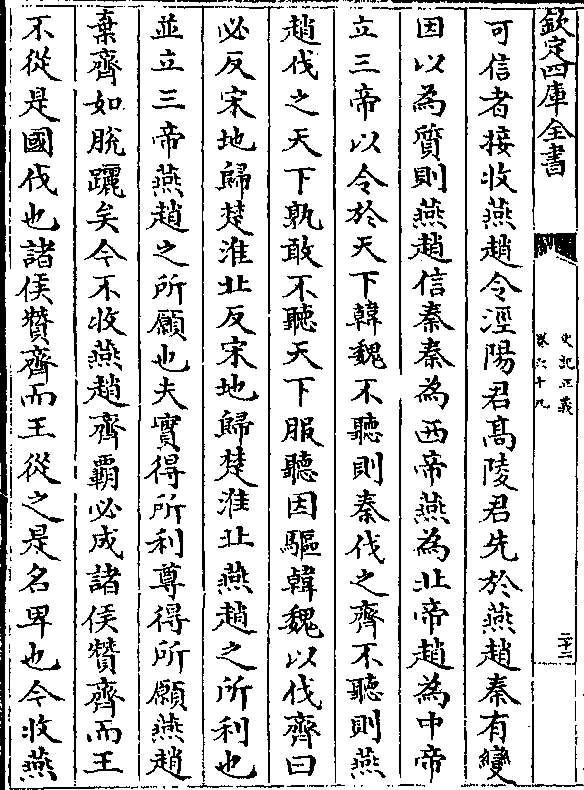 欽定四庫全書
史記正義
卷六十九
二十二
可信者接收燕趙令涇陽君髙陵君先於燕趙秦有變
因以為質則燕趙信秦秦為西帝燕為北帝趙為中帝
立三帝以令於天下韓魏不聽則秦伐之齊不聽則燕
趙伐之天下孰敢不聽天下服聽因驅韓魏以伐齊曰
必反宋地歸楚淮北反宋地歸楚淮北燕趙之所利也
並立三帝燕趙之所願也夫實得所利尊得所願燕趙
棄齊如脫躧矣今不收燕趙齊霸必成諸侯贊齊而王
不從是國伐也諸侯贊齊而王從之是名卑也今收燕